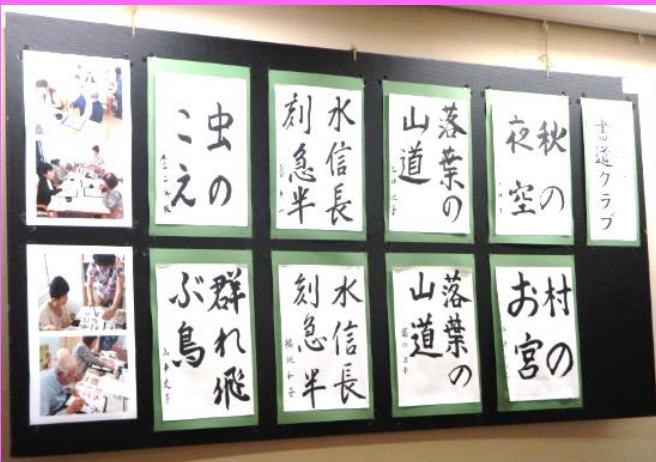 書道クラブ
秋の
夜空
落葉の
山道
水信長
刻急半
虫の
こえ
村の
お宮
落葉の
山道
水信長
刻急半
群れ飛
ぶ鳥